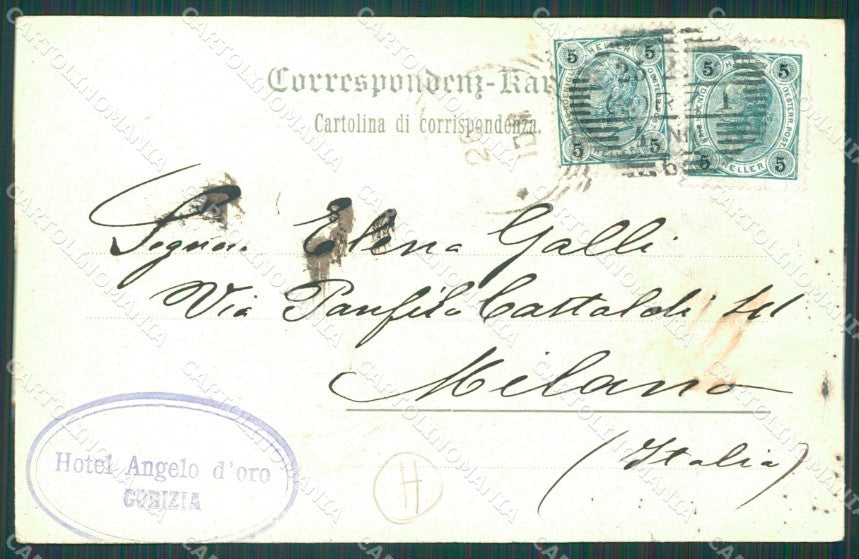 Correspondenz-Kar
Cartolina di corrispondenza.
5 HELLER 5
5 5
5 5
5 HELLER 5
26
Signora Elena Galli
Via Panfilo Castaldi 41
Milano
(Italia)
Hotel Angelo d'oro
GORIZIA
H
CARTOLINOMANIA